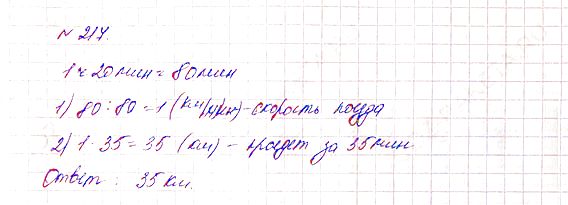 № 217.
1 ч 20 мин = 80 мин
1) 80 : 80 = 1 (км/мин) - скорость поезда
2) 1 · 35 = 35 (км) - проедет за 35 мин
Ответ : 35 км.